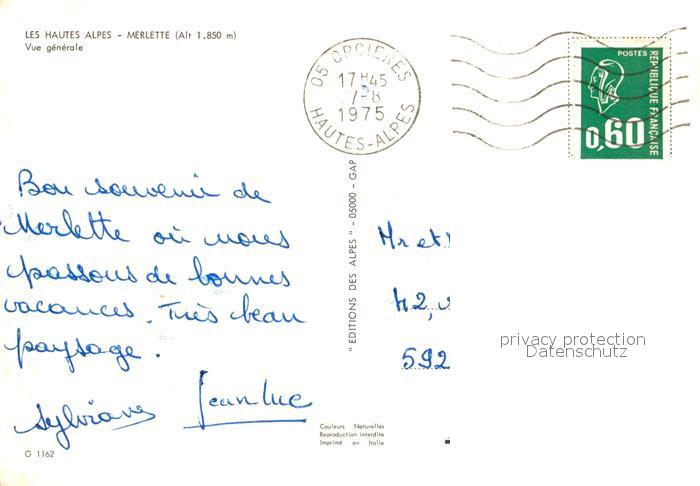 LES HAUTES ALPES - MERLETTE (Alt 1.850 m)
Vue générale
05 ORCIERES
17H45
7-8
1975
HAUTES-ALPES
POSTES
REPUBLIQUE FRANÇAISE
0,60
Bon souvenir de
Merlette où nous
passons de bonnes
vacances. Très beau
paysage.
Sylviane Jean Luc
"EDITIONS DES ALPES" - 05000 - GAP
Mr et
42,
592
privacy protection
Datenschutz
Couleurs Naturelles
Reproduction interdite
Imprimé en Italie
G 1162